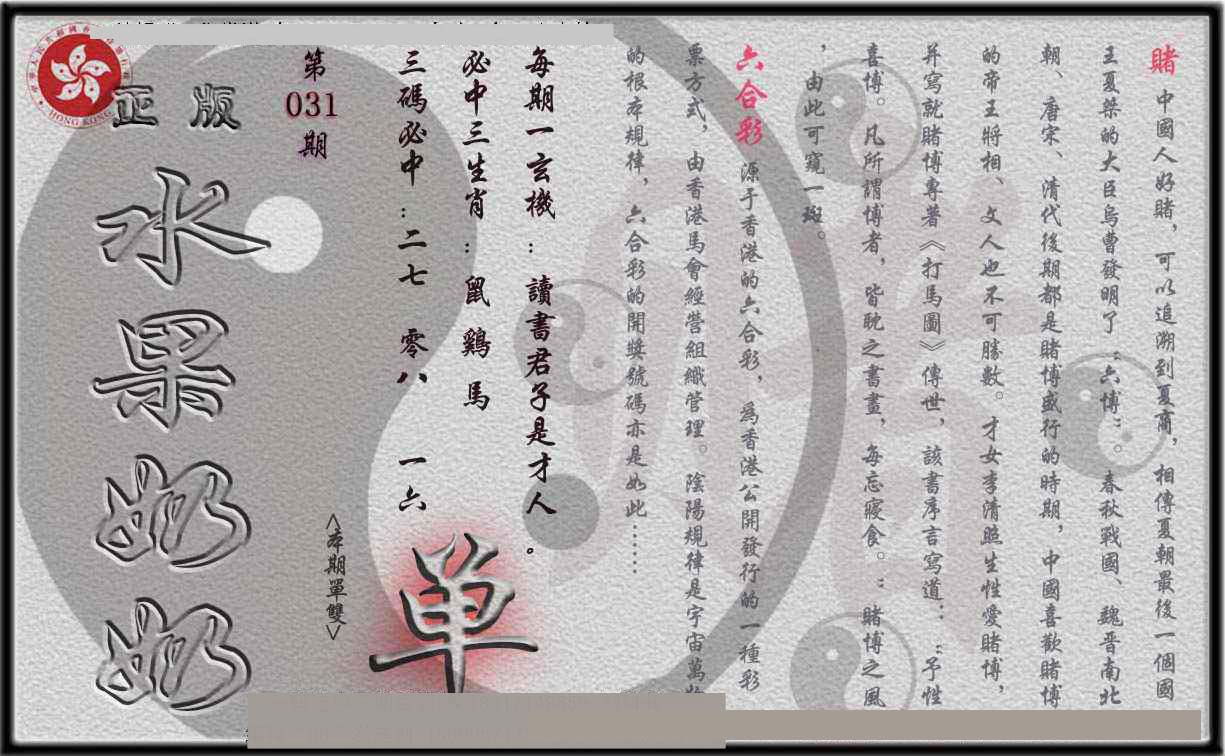 賭 中國人好賭，可以追溯到夏商，相傳夏朝最後一個國
王夏桀的大臣烏曹發明了“六博”。春秋戰國、魏晋南北
朝、唐宋、清代後期都是賭博盛行的時期，中國喜歡賭博
的帝王將相、文人也不可勝數。才女李清照生性愛賭博，
并寫就賭博專著《打馬圖》傳世，該書序言寫道：“予性
喜博。凡所謂博者，皆耽之書畫，每忘寢食。”賭博之風
，由此可窺一斑。
六合彩 源于香港的六合彩，為香港公開發行的一種彩
票方式，由香港馬會經營組織管理。陰陽規律是宇宙萬物
的根本規律，六合彩的開獎號碼亦是如此……
每期一玄機：讀書君子是才人。
必中三生肖：鼠 鷄 馬
三碼必中：二七 零八 一六
單
<本期單雙>
第
031
期
正版
水果奶奶
HONG KONG